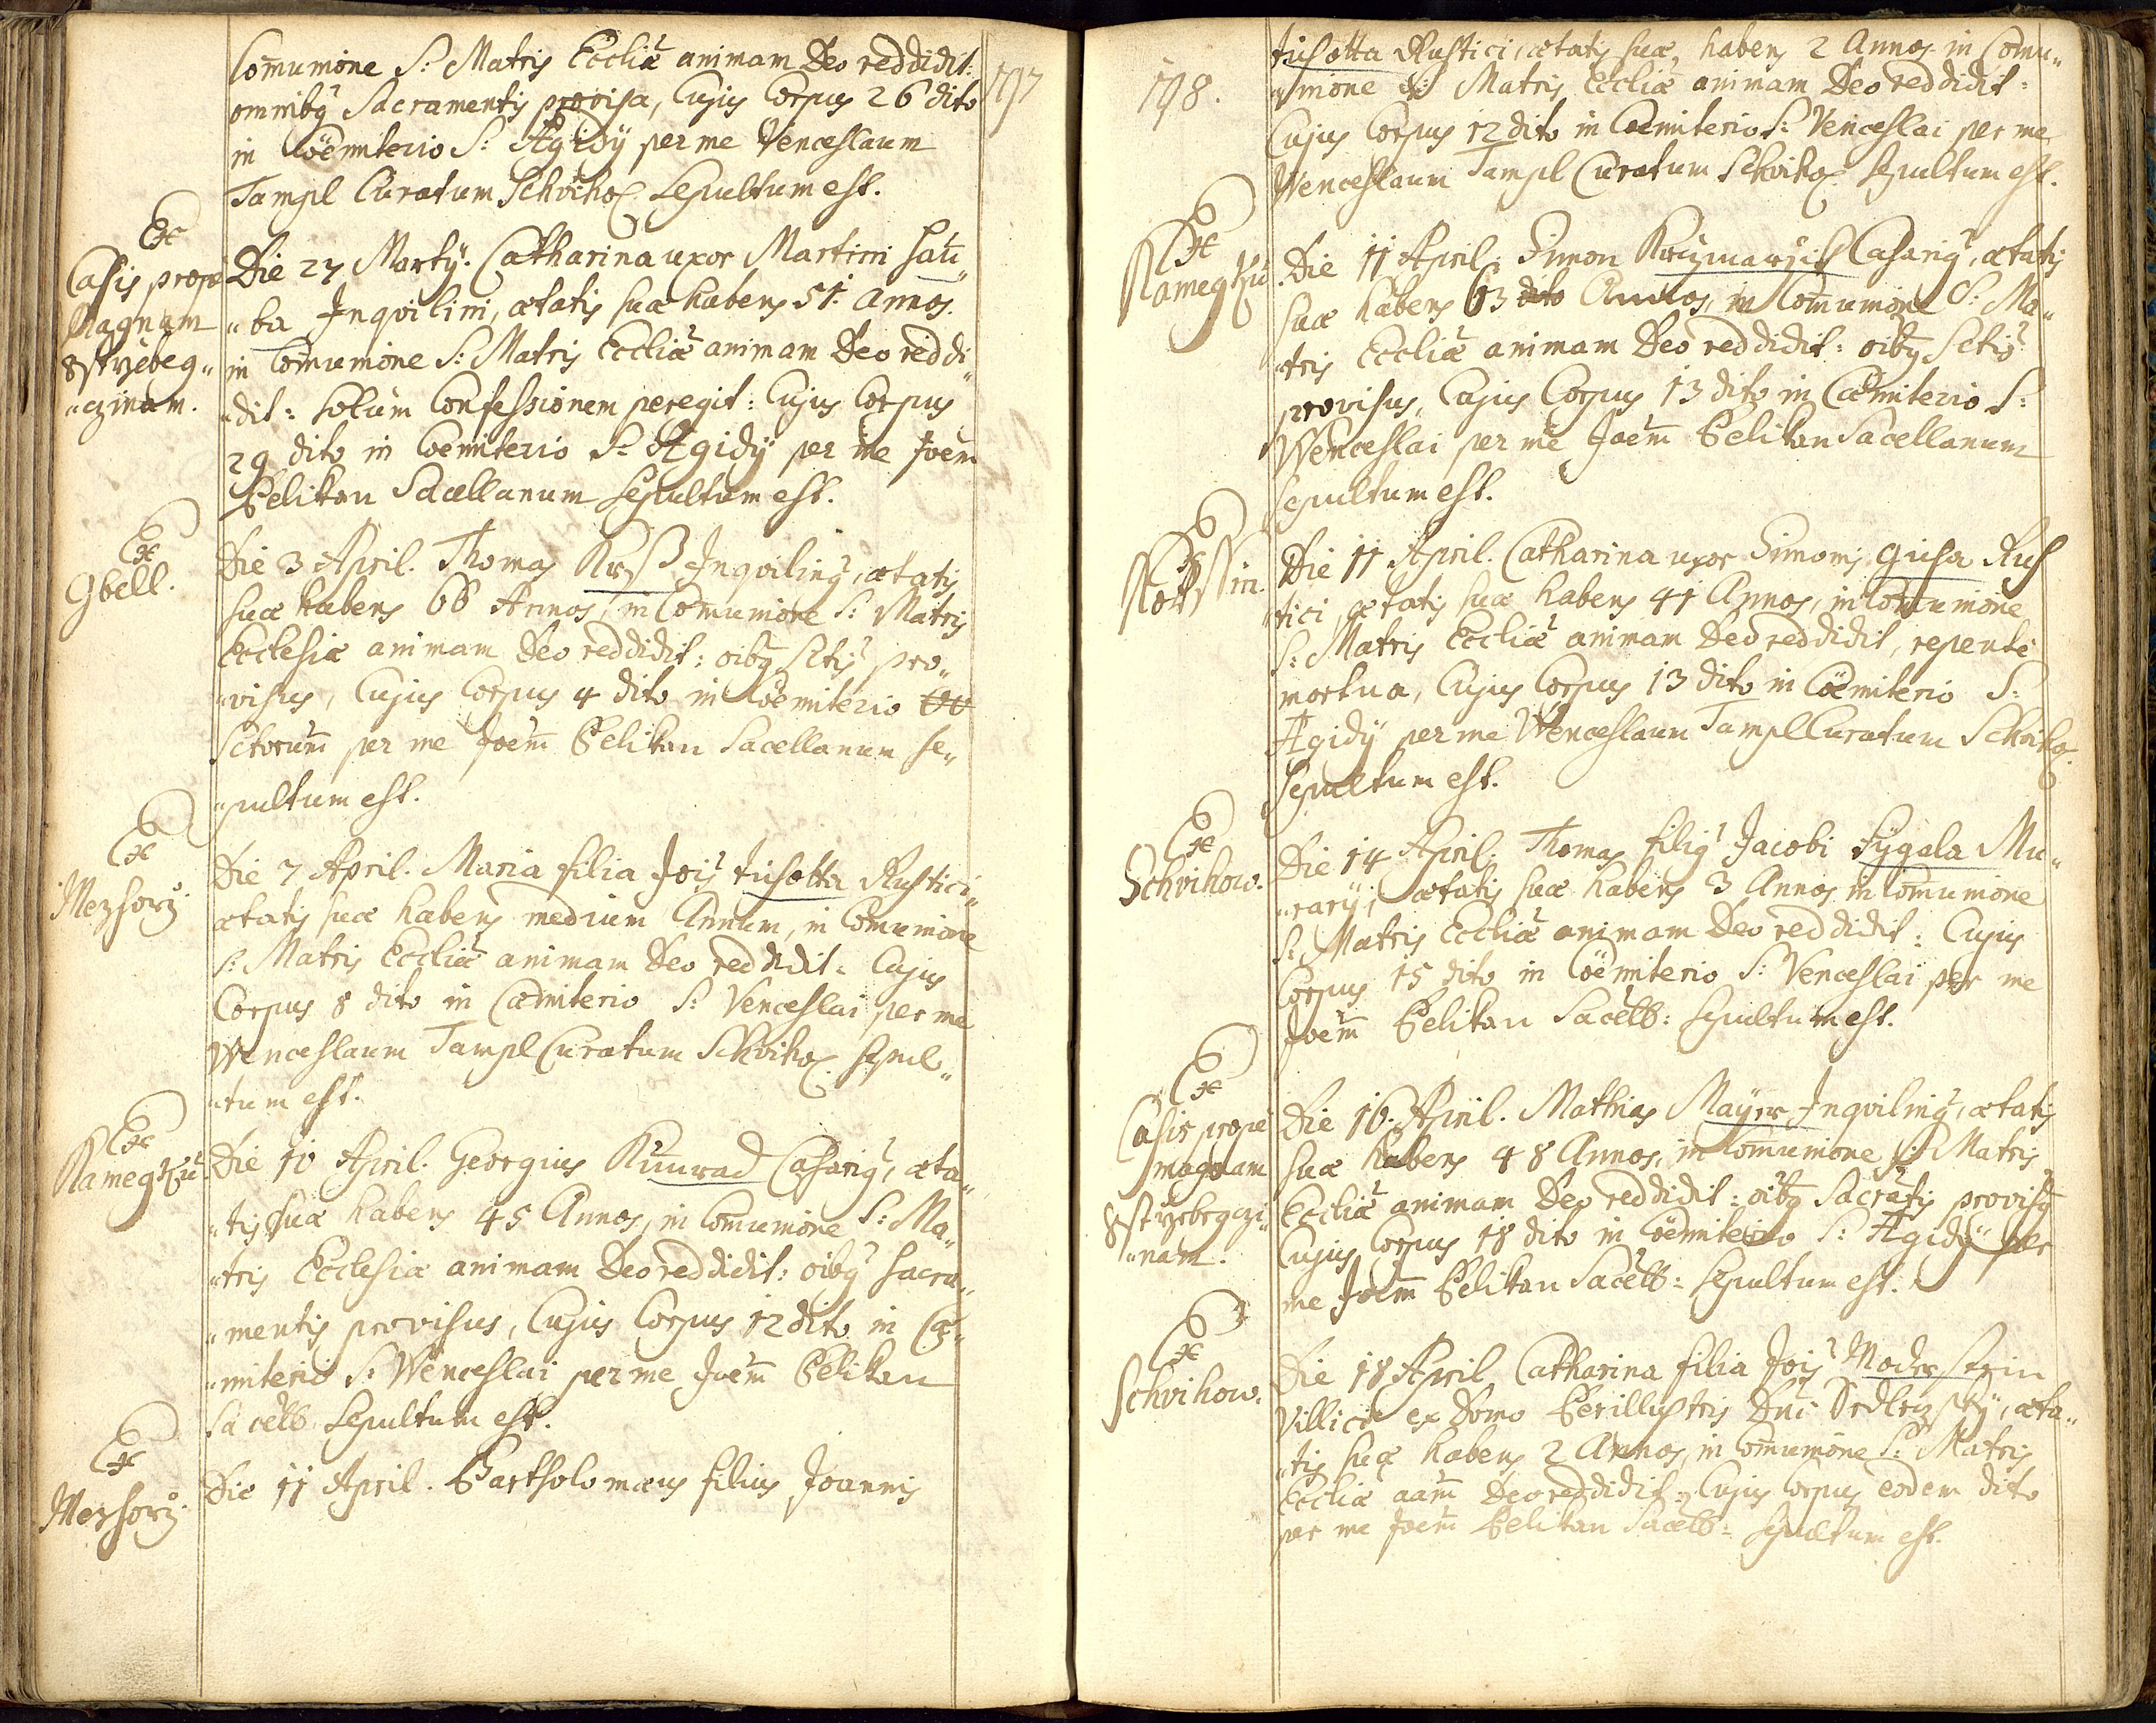 197
Comumone S: Matris Eccliæ animam Deo reddidit:
omnibq Sacramentis provisa, Cujus Corpus 26 dito
in Coëmiterio S: Ægidÿ per me Venceslaum
Tampl Curatum Schvihow Sepultum est.
Ex
Casis prope
Magnam
Die 27 Martÿ. Catharina uxor Martini Hau„
„ba Inqvilini, ætatis suæ habens 51. Annos.
in Comumone S: Matris Eccliæ animam Deo reddi„
„dit: solum Confessionem peregit: Cujus Corpus
29 dito in Coëmiterio S: Ægidÿ per me Joem
Pelikan Sacellanum Sepultum est.
Ex
Gbell.
Die 3 April. Thomas Krß Inqvilinq, ætatis
suæ habens 66 Annos, in Comumone S: Matris
Ecclesiæ animam Deo reddidit: oibq sctis pro„
„visus, Cujus Corpus 4 dito in Coëmiterio
Sctorum per me Joem Pelikan Sacellanum se„
„pultum est.
Ex
Mezhorz.
Die 7 April. Maria filia Jois Jusotta Rustici„
ætatis suæ habens medium Annum, in Comumone
S: Matris Eccliæ animam Deo reddidit: Cujus
Corpus 8 dito in Cœmiterio S: Venceslai per me
Wenceslaum Tampl Curatum Schviho: sepul„
„tum est.
Ex
Kamegku.
Die 10 April. Georgius Kunrad Casariq, æta„
„tis suæ habens 45 Annos, in Comumone S: Ma„
„tris Ecclesiæ animam Deo reddidit: oibq sacra„
„mentis provisus, Cujus Corpus 12 dito in Cœ„
„miterio S: Wenceslai per me Joem Pelikan
Sacelb. Sepultum est.
Ex
Mezhorz.
Die 11 April. Bartholomæus filius Joannis
198.
Jusotta Rustici, ætatis suæ, habens 2 Annos in Comu„
„mone S: Matris Eccliæ animam Deo reddidit:
Cujus Corpus 12 dito in Coemiterio S: Venceslai per me
Wenceslaum Tampl Curatum Schviho: sepultum est.
Ex
Kamegku.
Die 11 April. Simon Krizmarzik Casariq, ætatis
suæ habens 63 dito Annos, in Comumone S: Ma„
„tris Eccliæ animam Deo reddidit: oibq Sctis
provisus, Cujus Corpus 13 dito in Cœmiterio S:
Wenceslai per me Joem Pelikan Sacellanum
sepultum est.
Ex
Die 11 April. Catharina uxor Simonis Giusa Rus
„tici, ætatis suæ habens 41 Annos, in Comumone
S: Matris Eccliæ animam Deo reddidit, repente
mortua, Cujus Corpus 13 dito in Coëmiterio S:
Ægidÿ per me Wenceslaum Tampl Curatum Schviho:
Sepultum est.
Ex
Schvihow.
Die 14 April. Thomas filiq Jacobi Sÿgala Mu„
„rarÿ, ætatis suæ habens 3 Annos in Comumone
S: Matris Eccliæ animam Deo reddidit: Cujus
Corpus 15 dito in Coëmiterio S: Venceslai per me
Joem Pelikan Sacelb: sepultum est.
Ex
Casis prope
magnam
„nam.
Die 16. April. Mathias Maÿer Inqvilinq, ætatis
suæ habens 48 Annos, in Comumone S: Matris
Eccliæ animam Deo reddidit: oibq Sacratis provisq
Cujus Corpus 18 dito in Coëmiterio S: Ægidÿ per
me Joem Pelikan Sacelb: sepultum est.
Ex
Schvihow.
Die 18 April. Catharina filia Jois
Villici ex Domo Perillustris Dni, æta„
„tis suæ habens 2 Annos, in Comumone S: Matris
Eccliæ aam Deo reddidit: Cujus Corpus eodem dito
per me Joem Pelikan Sacelb: sepultum est.